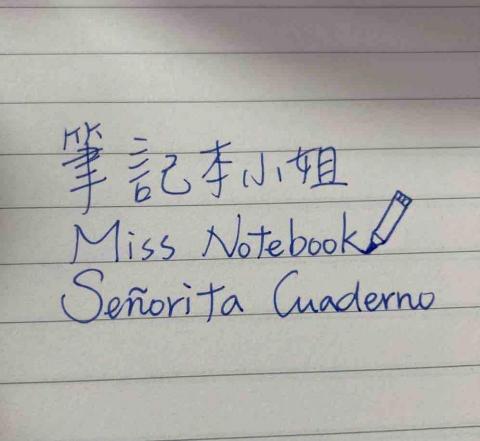 筆記本小姐
Miss Notebook
Señorita Cuaderno